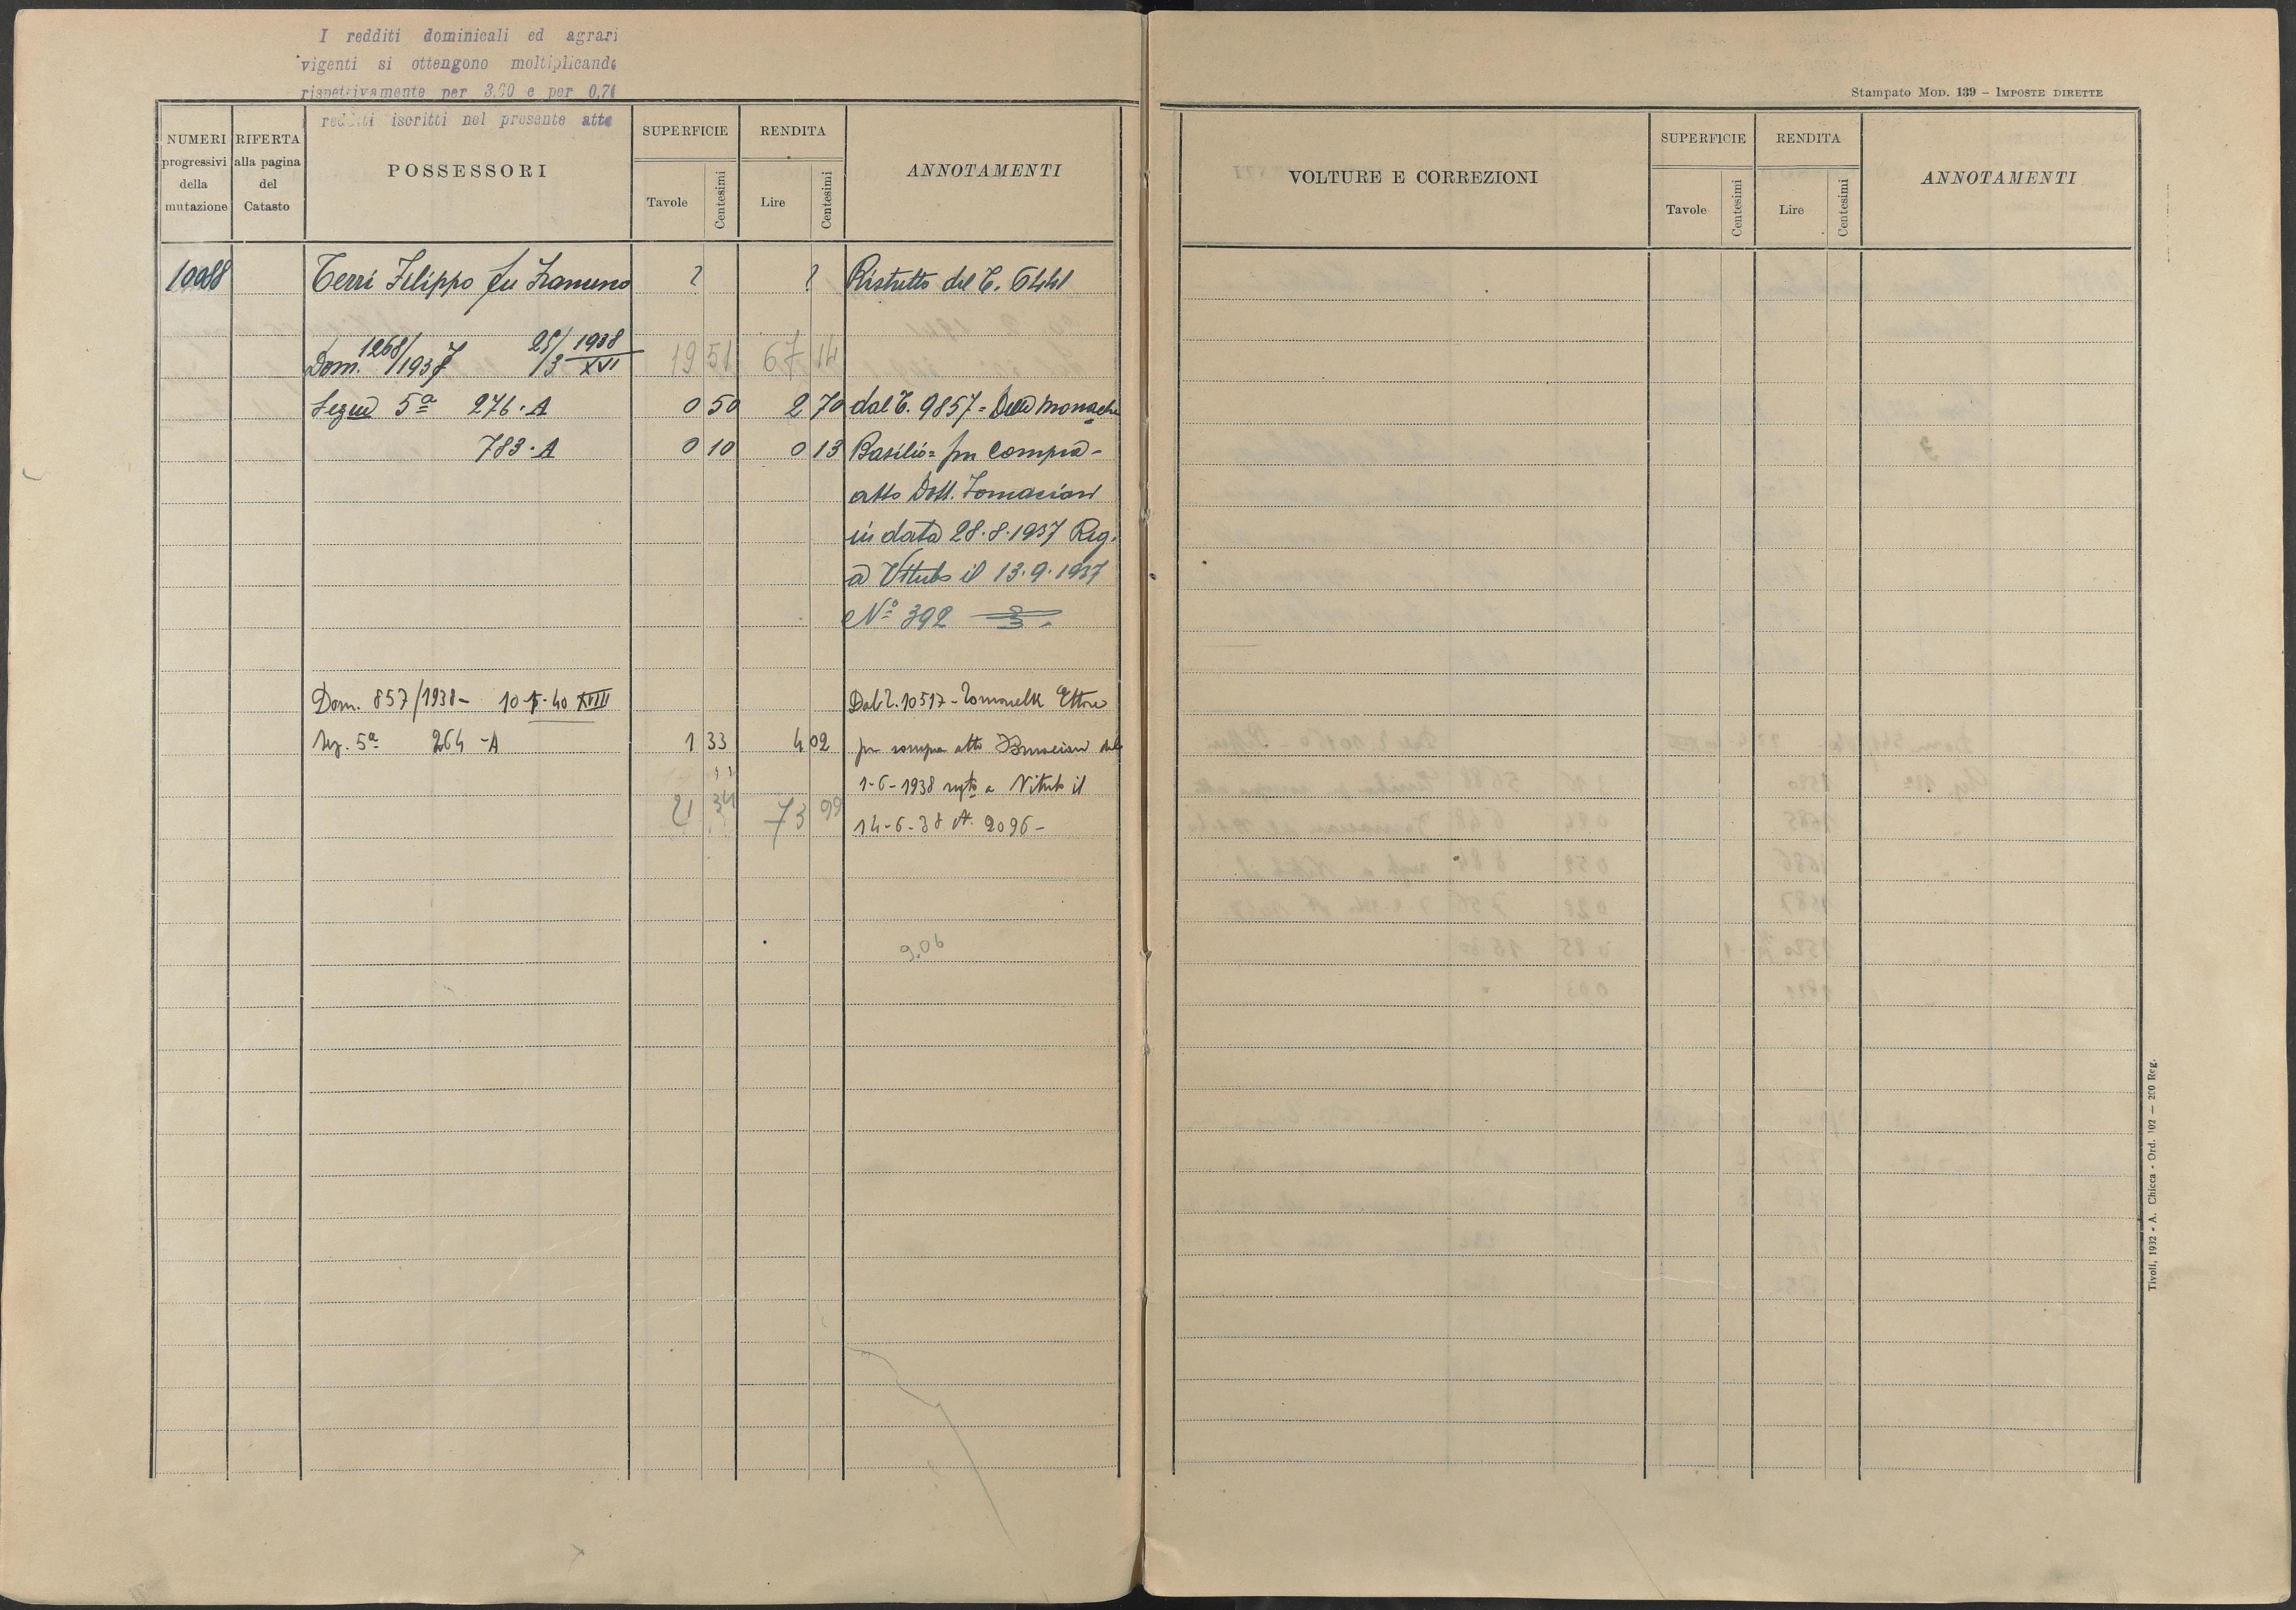 I redditi dominicali ed agrari
vigenti si ottengono moltiplicando
rispettivamente per 3,60 e per 0,70
redditi iscritti nel presente atto
Stampato Mod. 139 – IMPOSTE DIRETTE
NUMERI progressivi della mutazione
RIFERTA alla pagina del Catasto
POSSESSORI
SUPERFICIE
Tavole Centesimi
RENDITA
Lire Centesimi
ANNOTAMENTI
VOLTURE E CORREZIONI
SUPERFICIE
Tavole Centesimi
RENDITA
Lire Centesimi
ANNOTAMENTI
Terri Filippo fu ? ? Ristretto del T. 6441
Dom. 1268/1937 25/3 1938 XVI 19 51 67 14
Segue 5ª 276·A 0 50 2 70 dal T. 9857 = Delle Monache
783·A 0 10 0 13 Basilio = per compra -
atto Dott.
in data 28·8·1937 Reg.
a Viterbo il 13·9·1937
Nº 392
Dom. 857/1938 - 10·5·40 XVIII Dal T. 10517 - Ettore
Sez. 5ª 264 -A 1 33 4 02 per compra atto del
1-6-1938 regto a Viterbo il
21 34 73 99 14-6-38 N. 2096 -
9,06
Tivoli, 1932 - A. Chicca - Ord. 102 — 200 Reg.